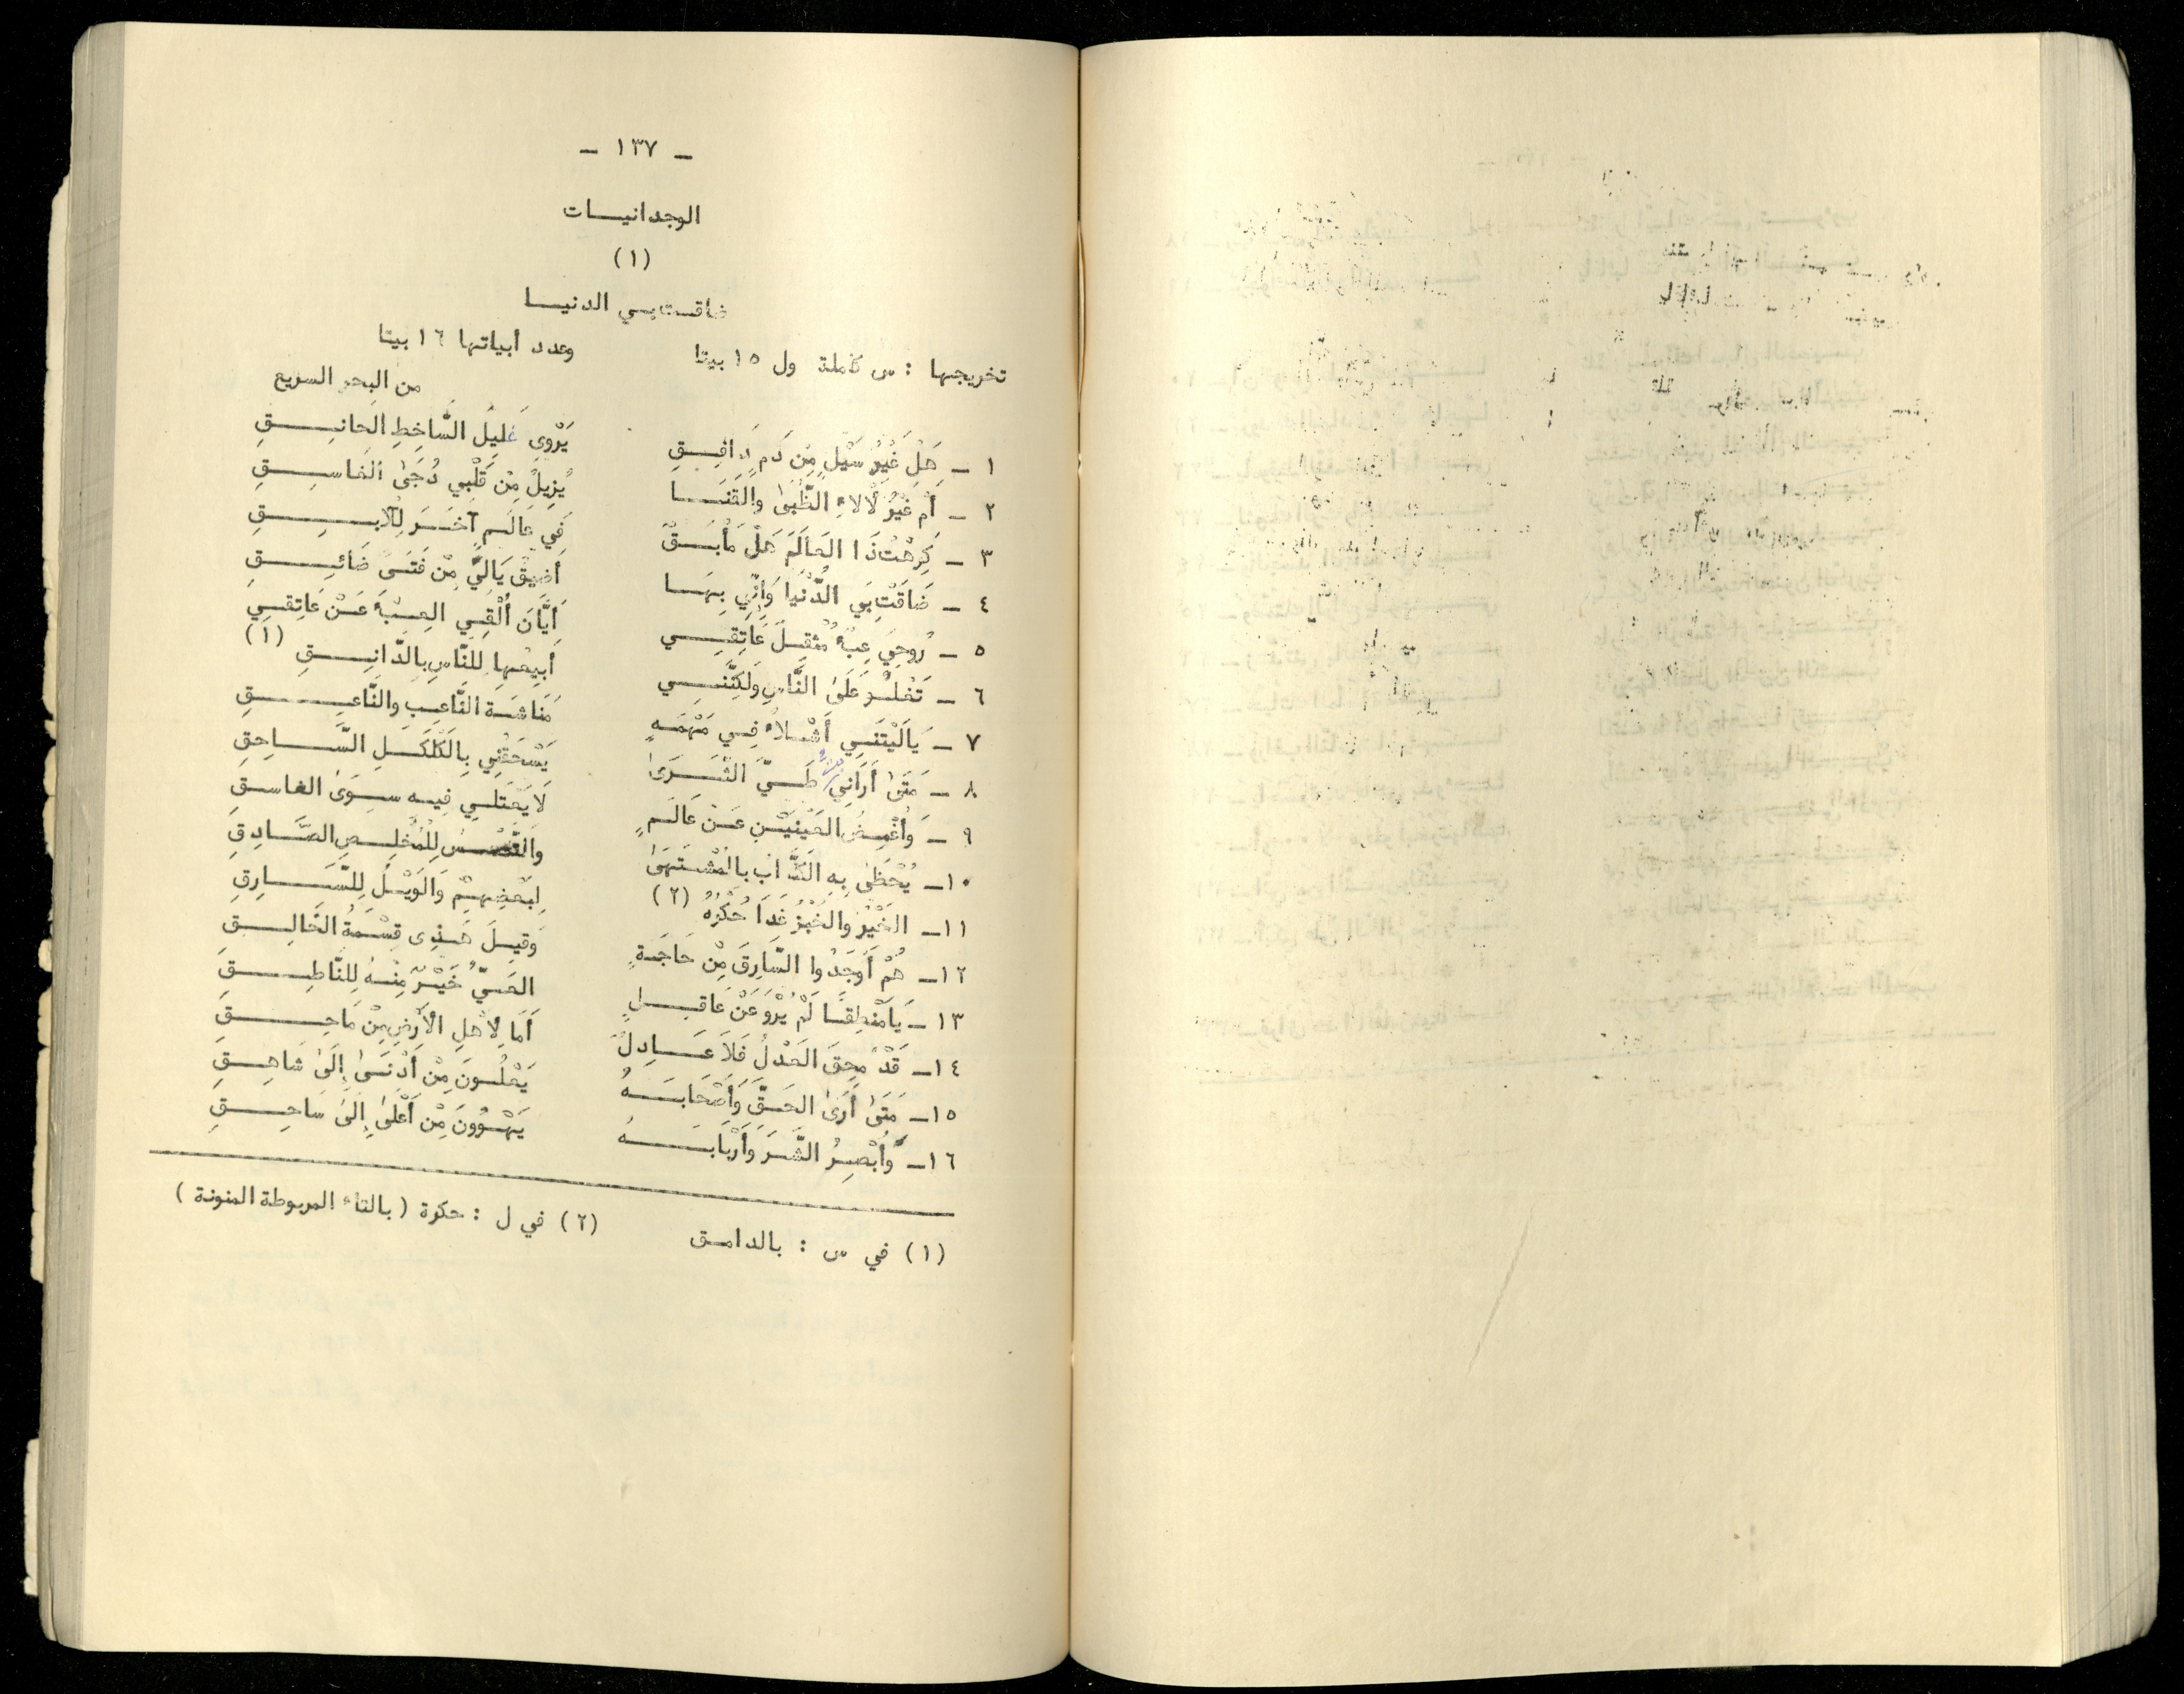 ـ ١٣٧ ـ
الوجدانيـــات
(١)
ضاقت بي الدنيـــا
تخريجها : س كاملة ول ١٥ بيتا وعدد أبياتها ١٦ بيتا
من البحر السريع
١ ـ هَلْ غَيْرُ سَيْلٍ مِنْ دَمٍ دَافِـقِ يَرْوِي غَلِيلَ السَّاخِطِ الحانِـقِ
٢ ـ أَمْ غَيْرُ لَأْلاءِ الظُّبَىٰ والقَنَـا يُزِيلُ مِنْ قَلْبِي دُجَىٰ الغاسِـقِ
٣ ـ كَرِهْتُ ذَا العَالَمَ هَلْ مَأْبَـقٌ فِي عَالَمٍ آخَـرَ لِلآبِـقِ
٤ ـ ضَاقَتْ بِيَ الدُّنْيَا وَإِنِّي بِهَـا أَضِيقُ يَالِيَّ مِنْ فَتَـىً ضَائِـقِ
٥ ـ رُوحِيَ عِبْءٌ مُثْقِلٌ عَاتِقِـي أَيَّانَ أُلْقِـي العِبْءَ عَـنْ عَاتِقـي
٦ ـ تَغْلُـو عَلَىٰ النَّاسِ وَلَكِنَّنِـي أَبِيعُهَا لِلنَّاسِ بِالدَّانِـقِ (١)
٧ ـ يَالَيْتَنِـي أَشْـلاءُ فِـي مَهْمَـهٍ مَنَاشَـةَ النَّاعِـبِ والنَّاعِـقِ
٨ ـ مَتَىٰ أَرَانِي طَـيَّ الثَّـرَىٰ يَسْحَقُنِي بِالكَلْكَـلِ السَّـاحِقِ
٩ ـ وَأُغْمِضُ العَيْنَيْـنِ عَـنْ عَالَـمٍ لَا يَعْتَلِـي فِيـهِ سِـوَىٰ الفاسـقِ
١٠ـ يُحْظَىٰ بِهِ الكَذَّابُ بالمُشْتَهَىٰ وَالتَّعْـسُ لِلْمُخْلِـصِ الصَّـادِقِ
١١ـ الخَيْرُ والخُبْزُ غَدَا حُكْرُهُ (٢) لِبَعْضِهِـمْ وَالوَيْـلُ لِلسَّـارِقِ
١٢ـ هُمْ أَوْجَدُوا السَّارِقَ مِنْ حَاجَـةٍ وَقِيـلَ هَـذِي قِسْـمَةُ الخَالِـقِ
١٣ـ يَا مَنْطِقـًا لَمْ يُرْوَ عَنْ عَاقِـلٍ العَـيُّ خَيْـرٌ مِنْـهُ لِلنَّاطِـقِ
١٤ـ قَدْ مُحِقَ العَدْلُ فَلاَ عَـادِلٌ أَمَا لِأَهْلِ الأَرْضِ مِنْ مَاحِـقِ
١٥ـ مَتَىٰ أَرَىٰ الحَـقَّ وَأَصْحَابَـهُ يَعْلُـونَ مِنْ أَدْنَـىٰ إِلَىٰ شَاهِـقِ
١٦ـ وَأُبْصِـرُ الشَّـرَ وَأَرْبَابَـهُ يَهْـوُونَ مِنْ أَعْلَىٰ إِلَىٰ سَاحِـقِ
(١) في س : بالدامـق (٢) في ل : حكرة ( بالتاء المربوطة المنونة )